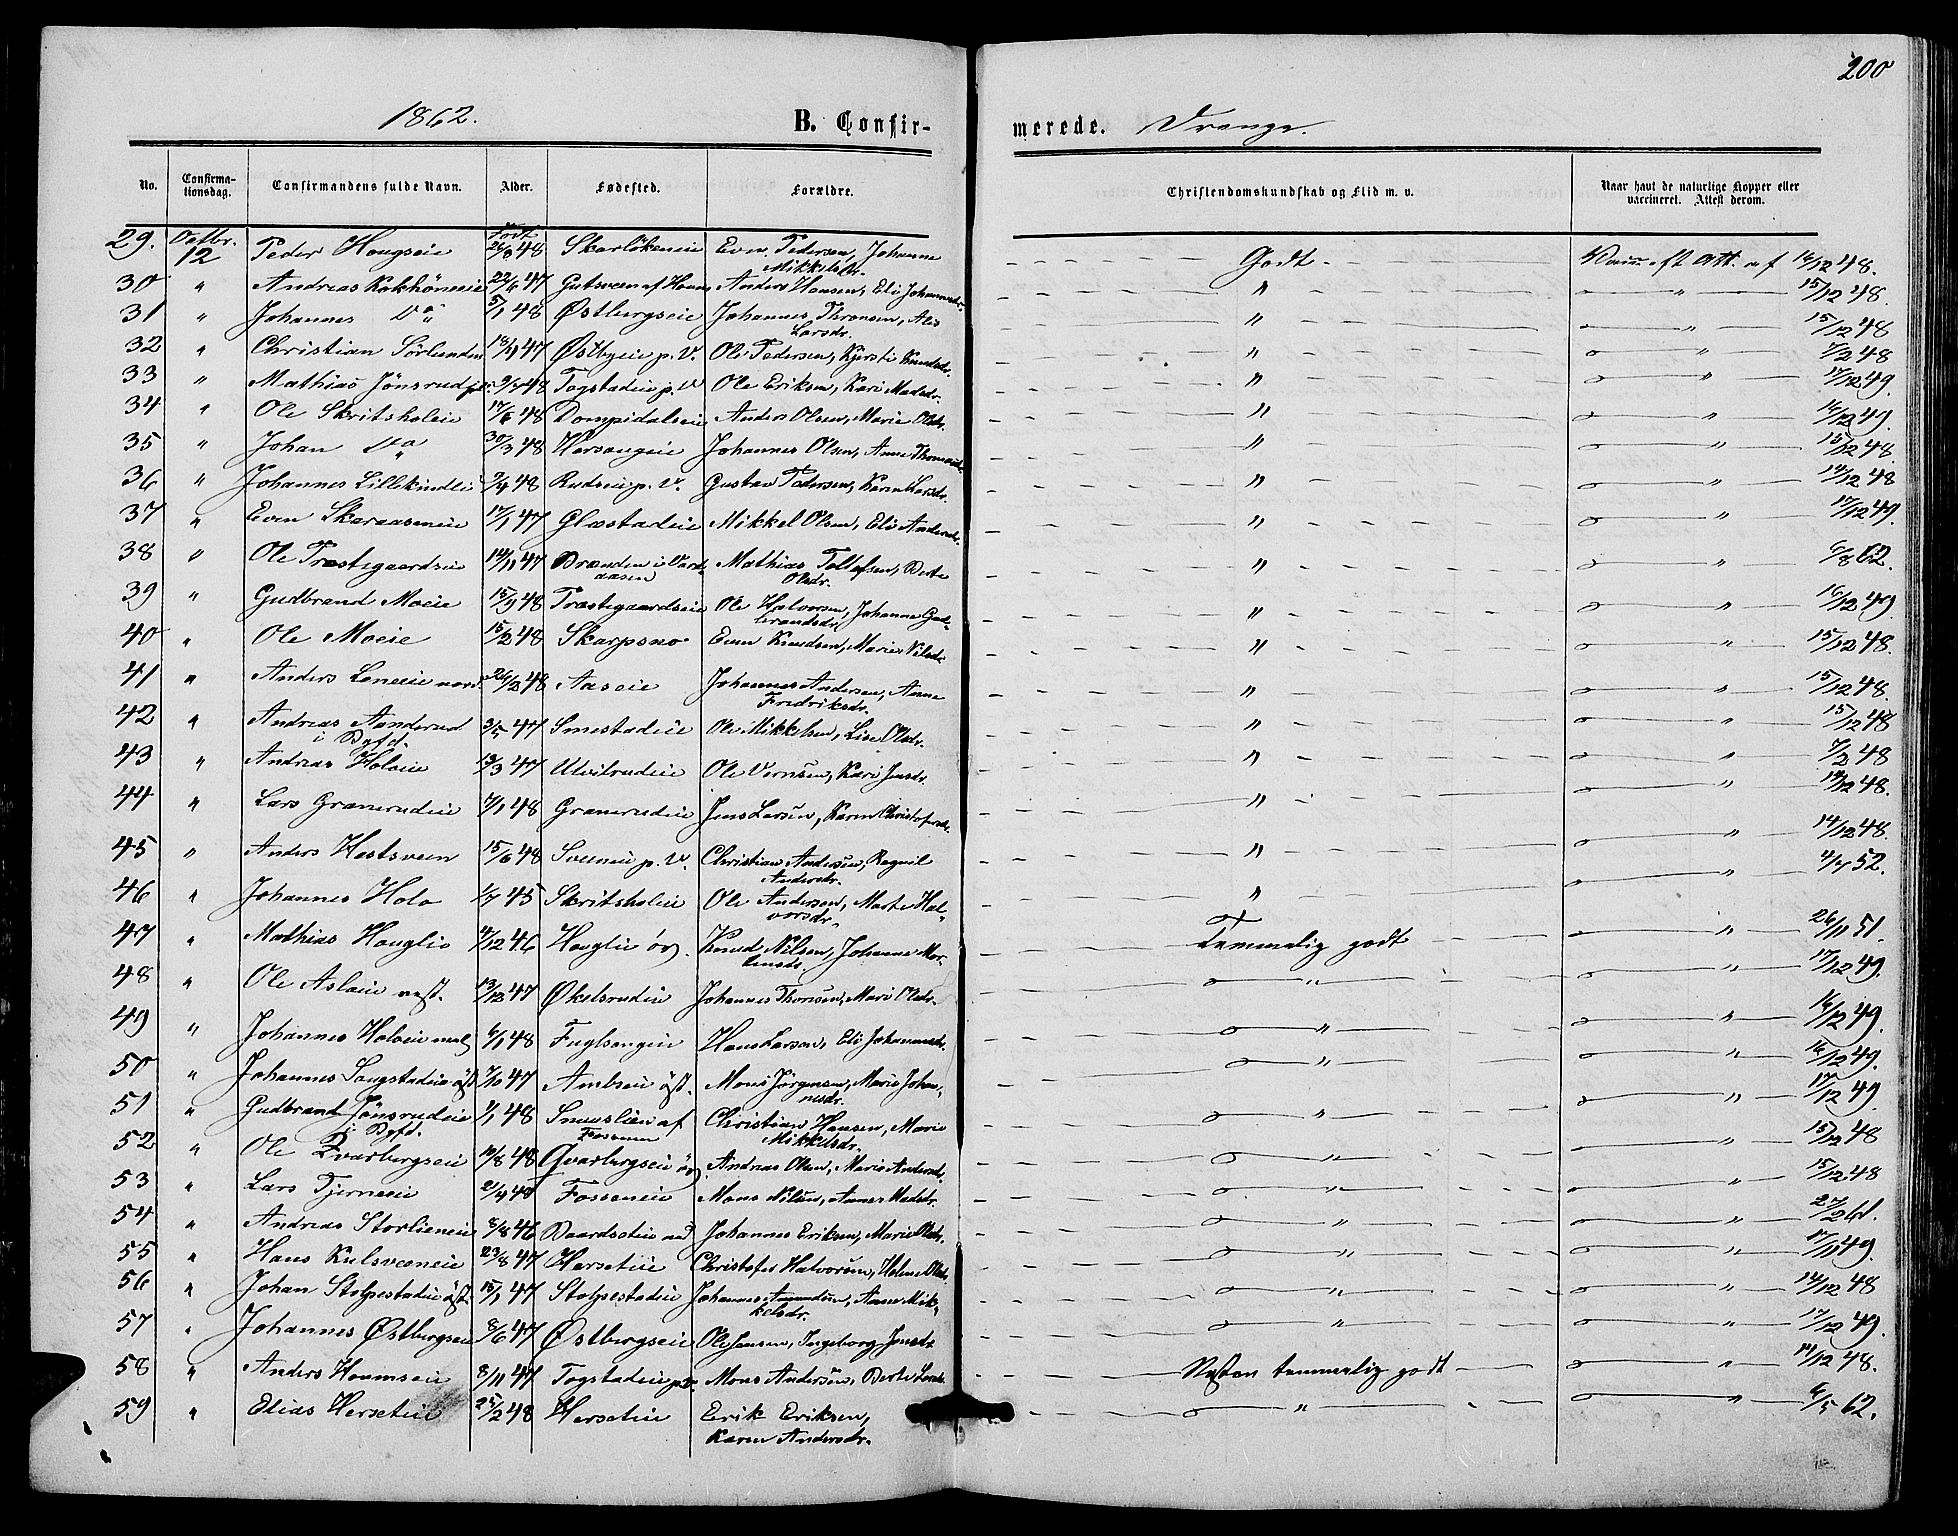 200
1862. B. Confir-
merede. Drenge.
No. Confirma-tionsdag. Confirmandens fulde Navn. Alder. Fødested. Forældre. Christendomskundskab og Flid m. v. Naar havt de naturlige Kopper eller vaccineret. Attest derom.
Født
29. Octbr. 12 Peder Hougseie 26/8 48 Skarlökeneie Even Pedersen, Johanne Mikkelsdr. Godt. Vacc. eft Att. af 16/12 48.
30 " Andreas Kokhöneeie 22/6 47 Gutsveen af Anders Hansen, Eli Johannesdr. " " 15/12 48.
31 " Johannes Do 5/1 48 Østbergseie Johannes Thronsen, Alis Larsdr. " " 15/12 48
32 " Christian Sörlunden 18/11 47 Østbyeie p. V. Ole Pedersen, Kjersti Knudsdr. " 7/2 48
33 " Mathias Jönsrud 9/5 48 Togstadeie p. V Ole Eriksen, Kari Madsdr. " " 17/12 49.
34 " Ole Skritsholeie 17/6 48 Dompidalseie Anders Olsen, Marie Olsdr. " " 16/12 49.
35 " Johan Do 30/3 48 Hersougeie Johannes Olsen, Anne Thomasdr. " " 15/12 48
36 " Johannes Lillekindlie 9/4 48 Rudseie p. V. Gustav Pedersen, Karen Larsdr. " " 14/12 48
37 " Even Skaraaseneie 17/1 47 Glæstadeie Mikkel Olsen, Eli Andersdr. " " 17/12 49.
38 " Ole Træstegaardseie 14/11 47 Brænden i Vard-aasen Mathias Tollefsen, Berte Olsdr. " " 6/8 62.
39 " Gudbrand Moeie 15/9 48 Træstegaardseie Ole Halvorsen, Johanne Gud-brandsdr. " " 16/12 49.
40 " Ole Moeie 15/2 48 Skarpsno Even Knudsen, Marie Nilsdr. " " 15/12 48.
41 " Anders Leneeie nord. 26/2 48 Aaseie Johannes Andersen, Anne Fredriksdr. " " 15/12 48.
42 " Andreas Aanderud i Bgfd. 3/5 47 Smestadeie Ole Mikkelsen, Lise Olsdr. " " 15/12 48
43 " Andreas Holoeie 13/3 47 Ulvilrudeie Ole Evensen, Kari Jensdr. " " 7/2 48
44 " Lars Granerudeie 7/1 48 Granerudeie Jens Larsen, Karen Christofersdr. " 14/12 48.
45 " Anders Hestsveen 15/6 48 Sveeneie p. V. Christian Andersen, Regnil Andersdr. " " 14/12 48.
46 " Johannes Holo 1/7 45 Skritsholeie Ole Andersen, Marte Hal-vorsdr. " " 4/7 52.
47 " Mathias Houglie 4/12 46 Houglie öv. Knud Nilsen, Johanne Mor-tensdr. Temmelig godt " 26/11 51.
48 " Ole Asloeie vest. 13/12 47 Økelsrudeie Johannes Thorsen, Mari Olsdr. " " 17/12 49.
49 " Johannes Holoeie mel 6/1 48 Fuglsangeie Hans Larsen, Eli Johannesdr. " " 16/12 49.
50 " Johannes Sougstadeie öst 7/10 47 Ambseie öst. Mons Jörgensen, Marie Johan-nesdr. " " 16/12 49.
51 " Gudbrand Jönsrudeie i Bgfd. 1/1 48 Snuuslien af Fossenen Christian Hansen, Marie Mikkelsdr. " " 17/12 49
52 " Ole Qvarbergseie 10/8 48 Qvarbergseie öv. Andreas Olsen, Marie Andersdr. " " 15/12 48
53 " Lars Tjerneeie 21/4 48 Fosseneie Mons Nilsen, Anne Madsdr. " " 15/12 48
54 " Andreas Storlieneie 8/8 46 Baardseteie ned Johannes Eriksen, Marie Olsdr. " " 27/2 61.
55 " Hans Kulsveeneie 23/8 47 Herseteie Christofer Halvorsen, Helene Olsdr. " " 17/11 49.
56 " Johan Stolpestadeie öst. 15/1 47 Stolpestadeie Johannes Amundsen, Anne Mik-kelsdr. " " 14/12 48
57 " Johannes Østbergseie 8/6 47 Østbergseie Ole Jensen, Ingeborg Jensdr. " " 17/12 49.
58 " Anders Houmseie 8/11 47 Togstadeie p. V. Mons Andersen, Berte Larsdr. Næsten temmelig godt " 14/12 48.
59 " Elias Herseteie 25/2 48 Herseteie Erik Eriksen, Karen Andersdr. " " 6/5 62.